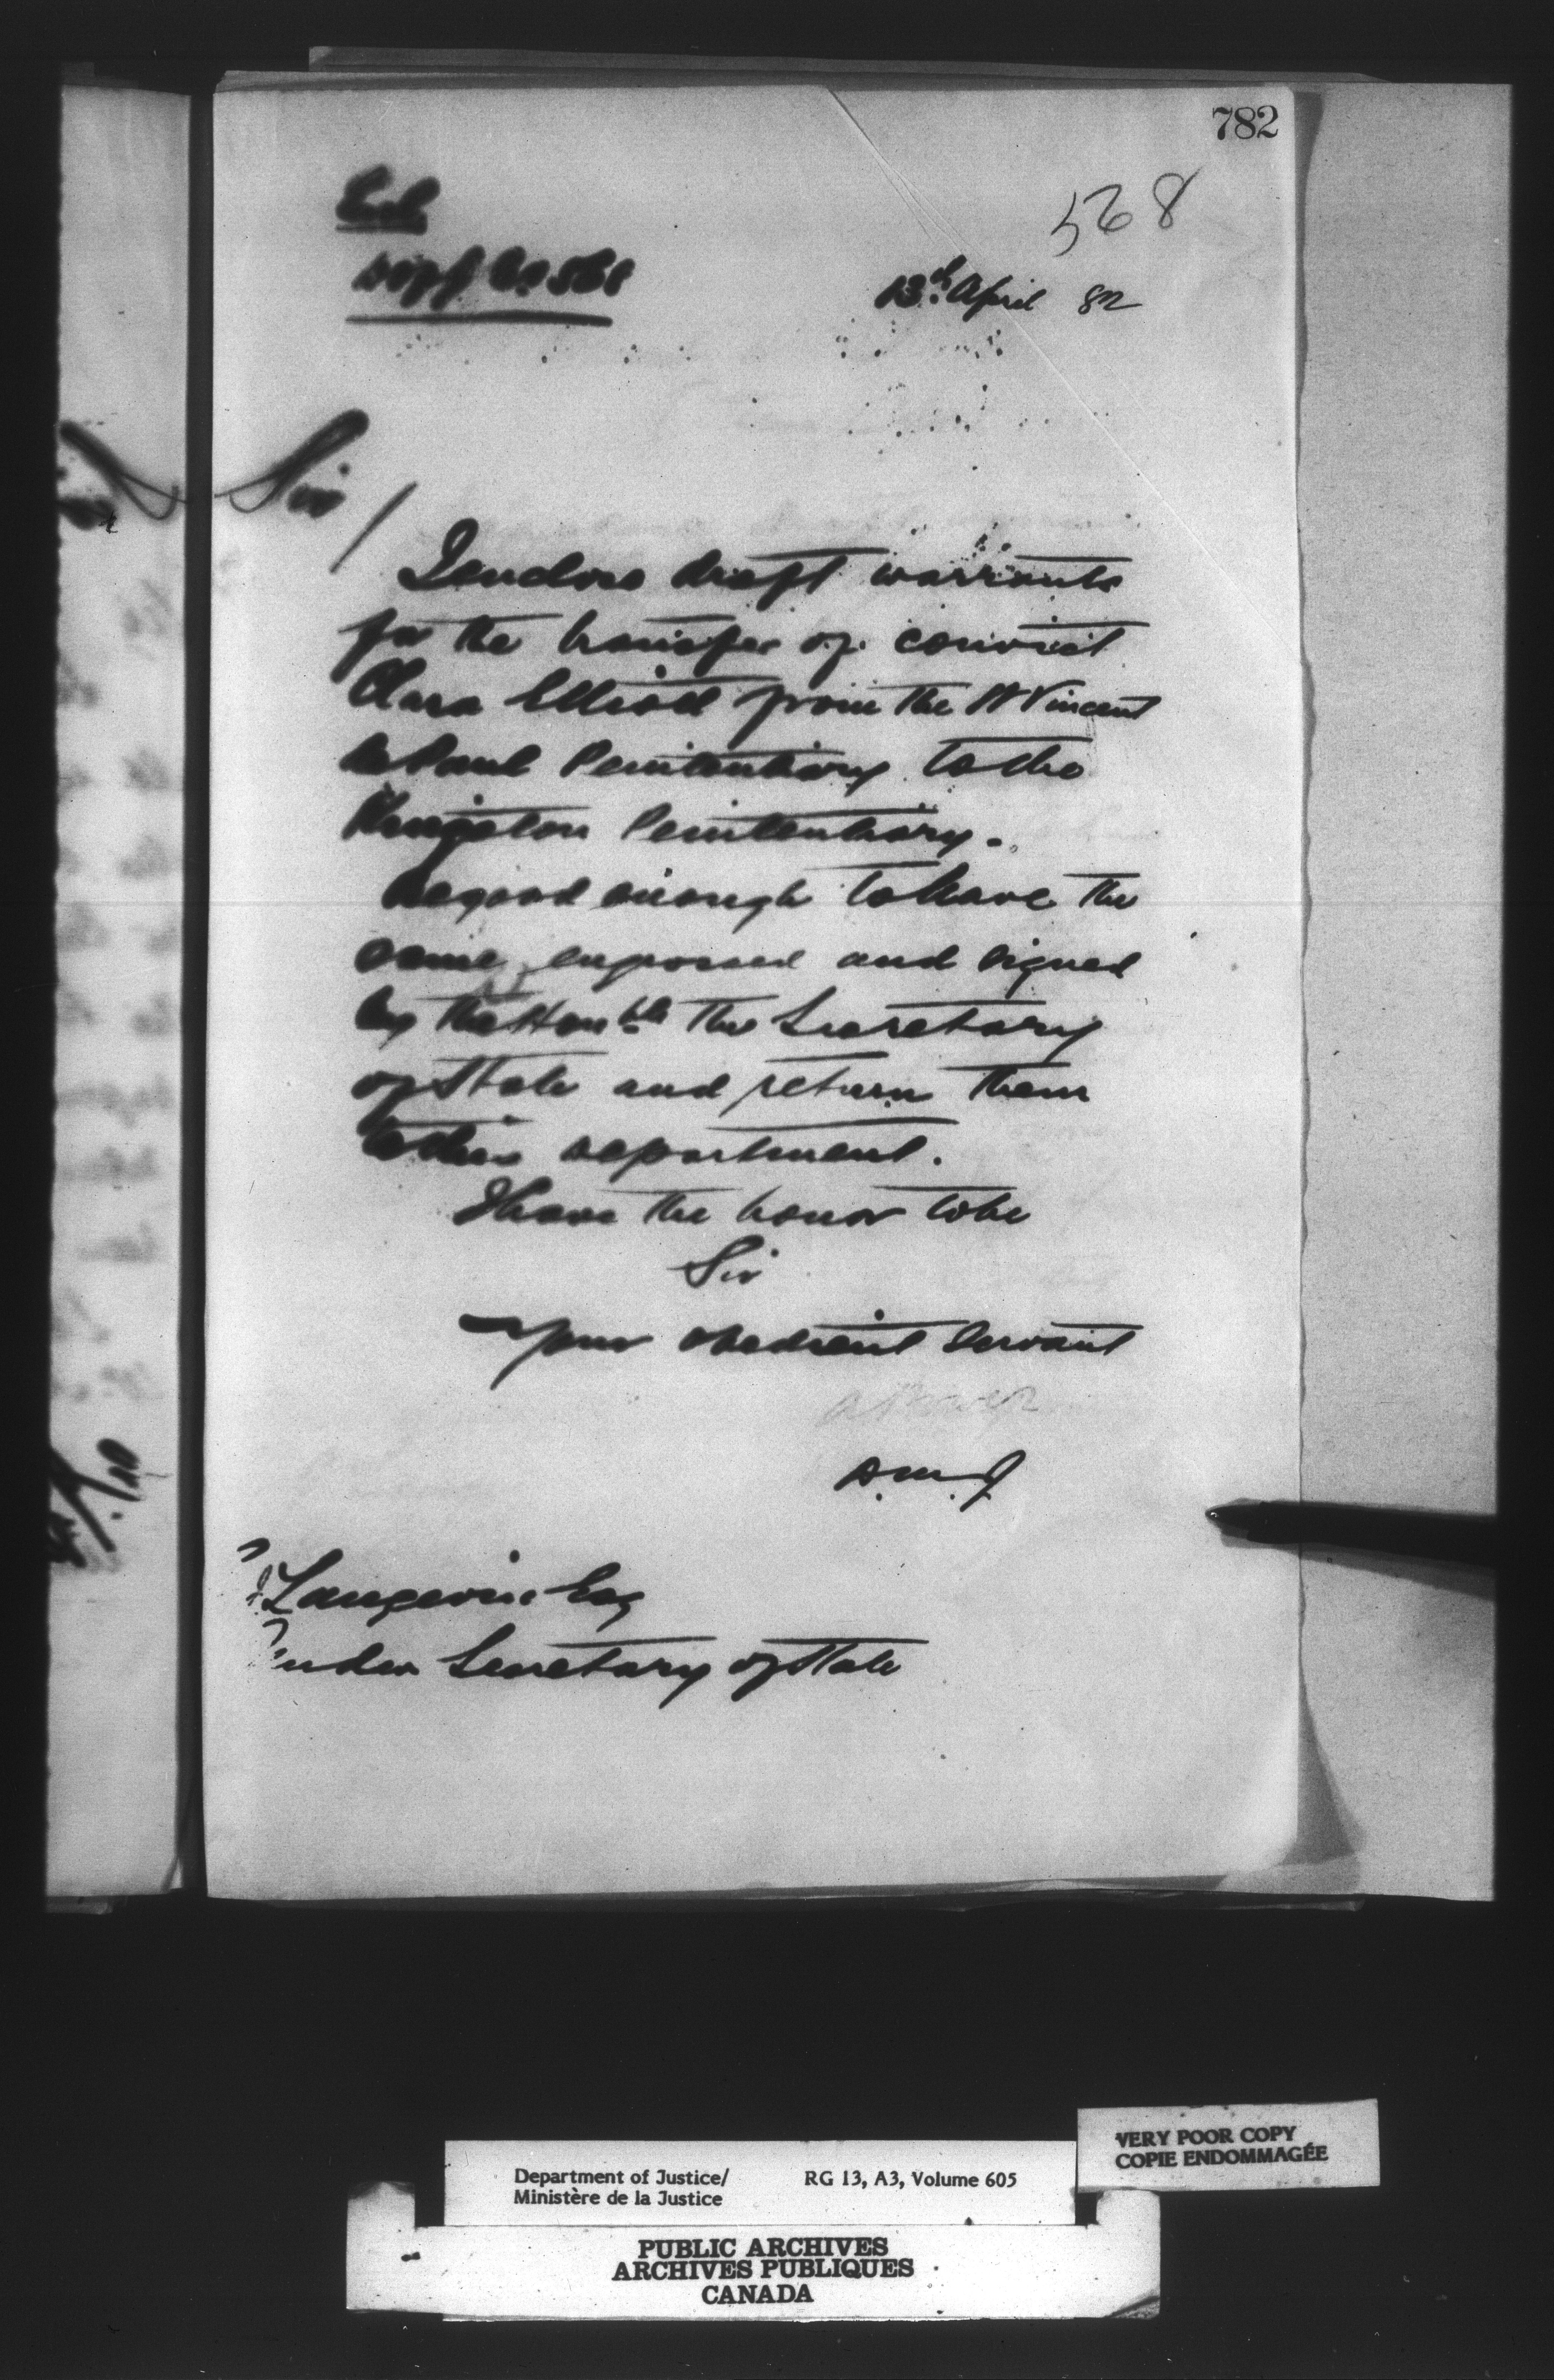 782
568
13th April 82
Sir /
I enclose draft warrants
for the transfer of convict
Clara Elliott from the St Vincent
de Paul Penitentiary to the
Kingston Penitentiary.
Be good enough to have the
same engrossed and signed
by the Honble the Secretary
of State and return them
to this department.
I have the honor to be
Sir
Your obedient servant
D.M.J
Langevin Esq
Under Secretary of State
VERY POOR COPY
COPIE ENDOMMAGÉE
Department of Justice/ RG 13, A3, Volume 605
Ministère de la Justice
PUBLIC ARCHIVES
ARCHIVES PUBLIQUES
CANADA